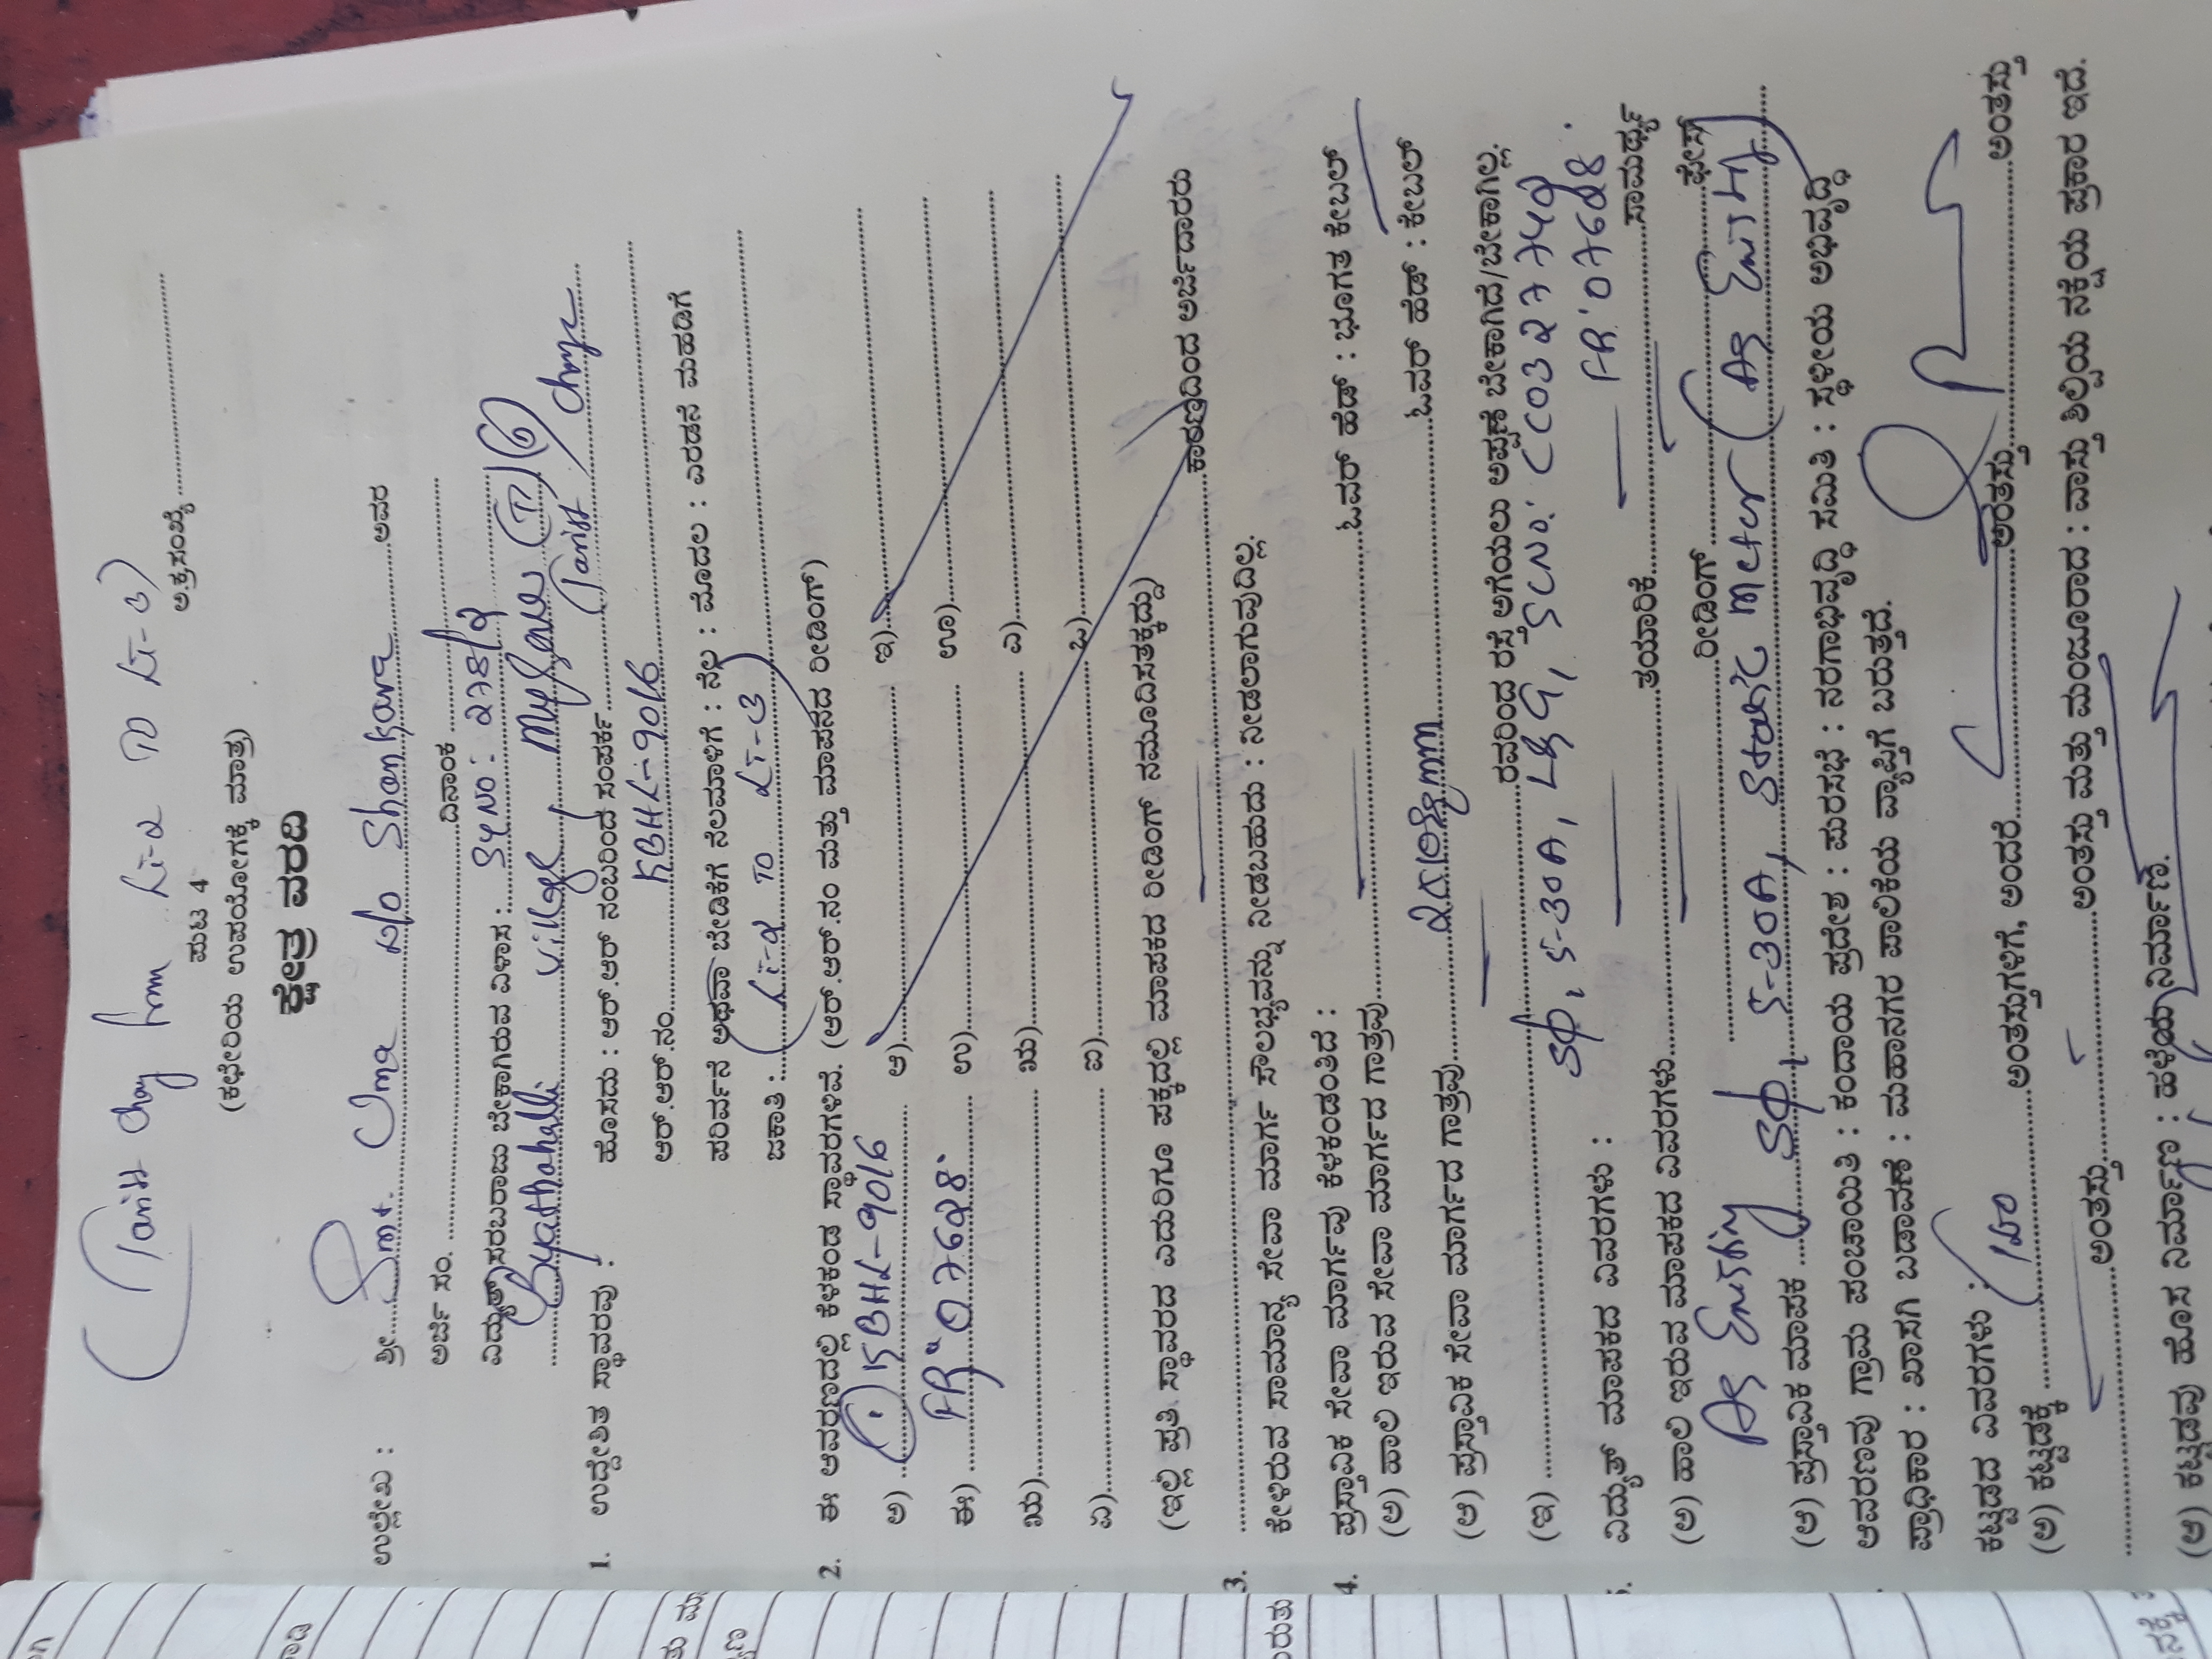 (Tariff Chang from LT-2 TO LT-3)
ಪುಟ 4 ಅ.ಕ್ರ.ಸಂಖ್ಯೆ
(ಕಛೇರಿಯ ಉಪಯೋಗಕ್ಕೆ ಮಾತ್ರ)
ಕ್ಷೇತ್ರ ವರದಿ
ಉಲ್ಲೇಖ : ಶ್ರೀ Smt. Uma Shankara ಅವರ
ಅರ್ಜಿ ಸಂ. ದಿನಾಂಕ
ವಿದ್ಯುತ್ ಸರಬರಾಜು ಬೇಕಾಗಿರುವ ವಿಳಾಸ : SyNo: 278/2
Byathahalli village, Mysore (T) (D)
1. ಉದ್ದೇಶಿತ ಸ್ಥಾವರವು : ಹೊಸದು : ಆರ್.ಆರ್ ನಂಬರಿಂದ ಸಂಪರ್ಕ (Tariff Change
ಆರ್.ಆರ್.ನಂ KBHL-9016
ಪರಿವರ್ತನೆ ಅಥವಾ ಬೇಡಿಕೆಗೆ ನೆಲಮಾಳಿಗೆ : ನೆಲ : ಮೊದಲ : ಎರಡನೆ ಮಹಡಿಗೆ
ಜಕಾತಿ : (LT-2 TO LT-3)
2. ಈ ಆವರಣದಲ್ಲಿ ಕೆಳಕಂಡ ಸ್ಥಾವರಗಳಿವೆ. (ಆರ್.ಆರ್.ನಂ ಮತ್ತು ಮಾಪನದ ರೀಡಿಂಗ್)
ಅ) 1) KBHL-9016 ಆ) ಇ)
ಈ) FR: 07628 ಉ) ಊ)
ಋ) ಋ) ಎ)
ಏ) ಐ) ಒ)
(ಇಲ್ಲಿ ಪ್ರತಿ ಸ್ಥಾವರದ ಎದುರಿಗೂ ಪಕ್ಕದಲ್ಲಿ ಮಾಪಕದ ರೀಡಿಂಗ್ ನಮೂದಿಸತಕ್ಕದ್ದು)
3. ಕಾರಣದಿಂದ ಅರ್ಜಿದಾರರು
ಕೇಳಿರುವ ಸಾಮಾನ್ಯ ಸೇವಾ ಮಾರ್ಗ ಸೌಲಭ್ಯವನ್ನು ನೀಡಬಹುದು : ನೀಡಲಾಗುವುದಿಲ್ಲ.
4. ಪ್ರಸ್ತಾವಿಕ ಸೇವಾ ಮಾರ್ಗವು ಕೆಳಕಂಡಂತಿದೆ :
(ಅ) ಹಾಲಿ ಇರುವ ಸೇವಾ ಮಾರ್ಗದ ಗಾತ್ರವು ಓವರ್ ಹೆಡ್ : ಭೂಗತ ಕೇಬಲ್
(ಆ) ಪ್ರಸ್ತಾವಿಕ ಸೇವಾ ಮಾರ್ಗದ ಗಾತ್ರವು ಓವರ್ ಹೆಡ್ : ಕೇಬಲ್
(ಇ) ರವರಿಂದ ರಸ್ತೆ ಅಗೆಯಲು ಅಪ್ಪಣೆ ಬೇಕಾಗಿದೆ/ಬೇಕಾಗಿಲ್ಲ.
5-30A, L&G, SCNO: CC0327742
FR: 07628.
ವಿದ್ಯುತ್ ಮಾಪಕದ ವಿವರಗಳು :
(ಅ) ಹಾಲಿ ಇರುವ ಮಾಪಕದ ವಿವರಗಳು ತಯಾರಿಕೆ ಸಾಮರ್ಥ್ಯ
ರೀಡಿಂಗ್ ಫೇಸ್
(ಆ) ಪ್ರಸ್ತಾವಿಕ ಮಾಪಕ 5-30A, Static Meter (As
ಆವರಣವು ಗ್ರಾಮ ಪಂಚಾಯಿತಿ : ಕಂದಾಯ ಪ್ರದೇಶ : ಪುರಸಭೆ : ನಗರಾಭಿವೃದ್ಧಿ ಸಮಿತಿ : ಸ್ಥಳೀಯ ಅಭಿವೃದ್ಧಿ
ಪ್ರಾಧಿಕಾರ : ಖಾಸಗಿ ಬಡಾವಣೆ : ಮಹಾನಗರ ಪಾಲಿಕೆಯ ವ್ಯಾಪ್ತಿಗೆ ಬರುತ್ತದೆ.
ಕಟ್ಟಡದ ವಿವರಗಳು :
(ಅ) ಕಟ್ಟಡಕ್ಕೆ ಅಂತಸ್ತುಗಳಿಗೆ, ಅಂದರೆ ಅಂತಸ್ತು ಅಂತಸ್ತು
ಅಂತಸ್ತು ಅಂತಸ್ತು ಮತ್ತು ಮಂಜೂರಾದ : ವಾಸ್ತು ಶಿಲ್ಪಿಯ ನಕ್ಷೆಯ ಪ್ರಕಾರ ಇದೆ.
(ಆ) ಕಟ್ಟಡವು ಹೊಸ ನಿರ್ಮಾಣ : ಹಳೆಯ ನಿರ್ಮಾಣ.